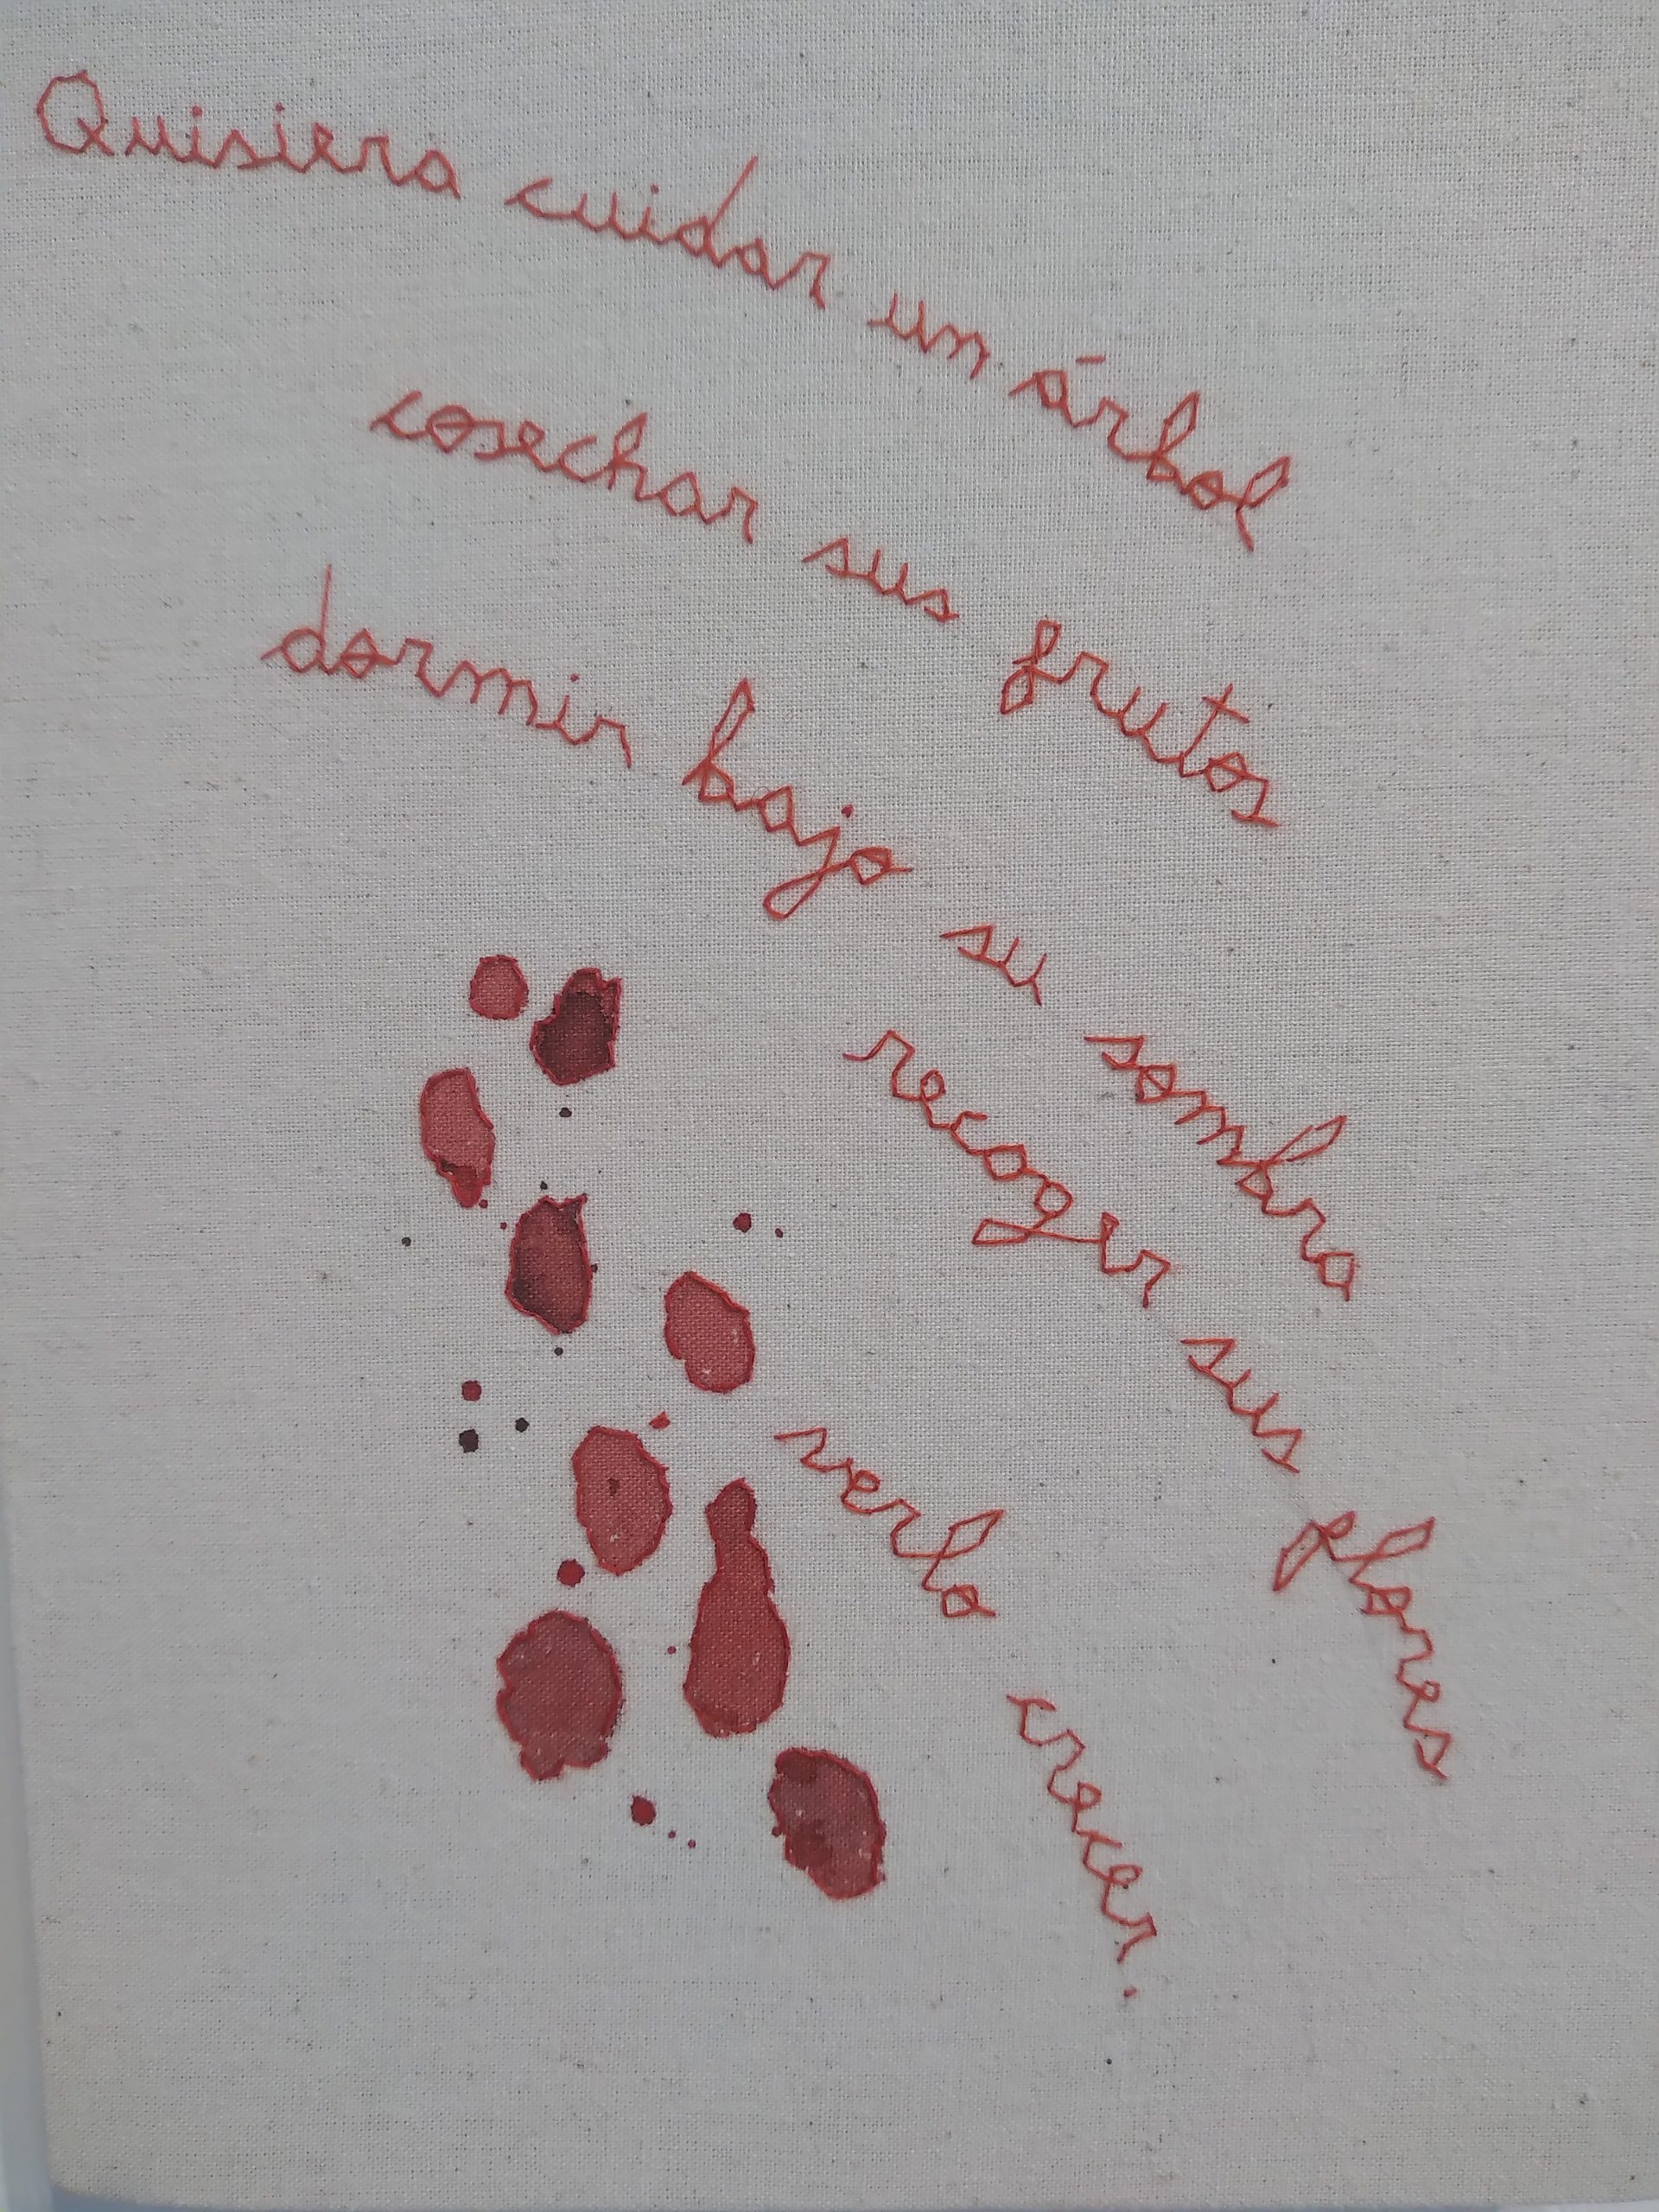 Quisiera cuidar un árbol
cosechar sus frutos
dormir bajo su sombra
recoger sus flores
verlo crecer.